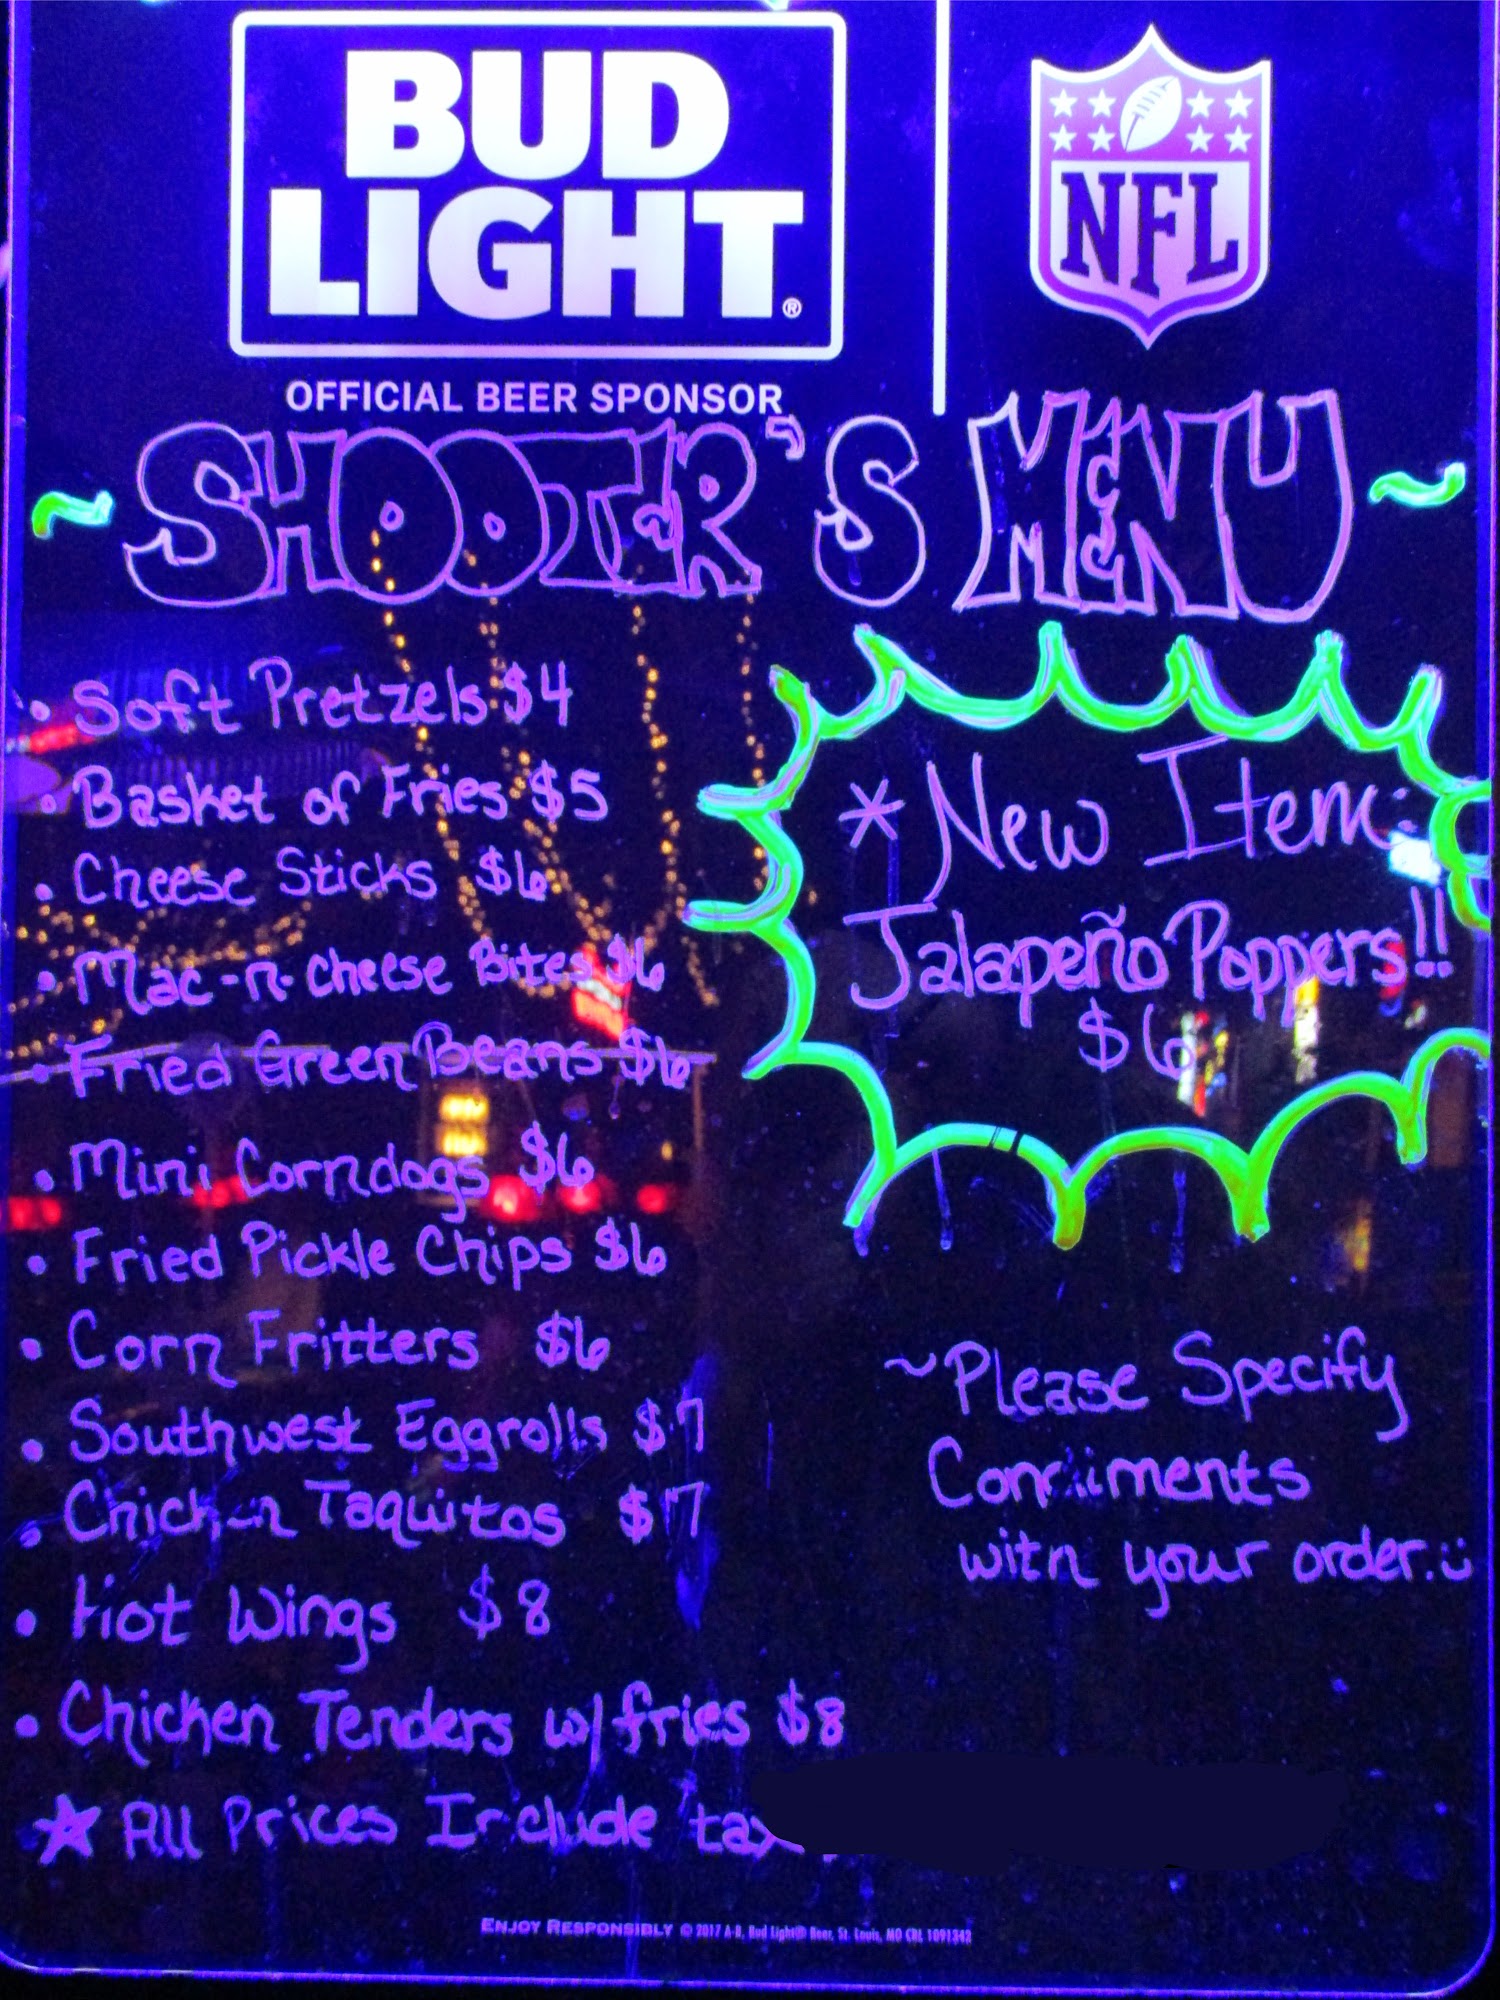 BUD
LIGHT®
NFL
OFFICIAL BEER SPONSOR
~ SHOOTER'S MENU ~
• Soft Pretzels $4
• Basket of Fries $5
• Cheese Sticks $6
• Mac-n-cheese Bites $6
• Fried Green Beans $6
• Mini Corndogs $6
• Fried Pickle Chips $6
• Corn Fritters $6
• Southwest Eggrolls $7
• Chicken Taquitos $7
• Hot Wings $8
• Chicken Tenders w/fries $8
★ All Prices Include tax
* New Item:
Jalapeño Poppers!!
$6
~Please Specify
Condiments
with your order.
ENJOY RESPONSIBLY © 2017 A-B, Bud Light® Beer, St. Louis, MO CRL 1091342